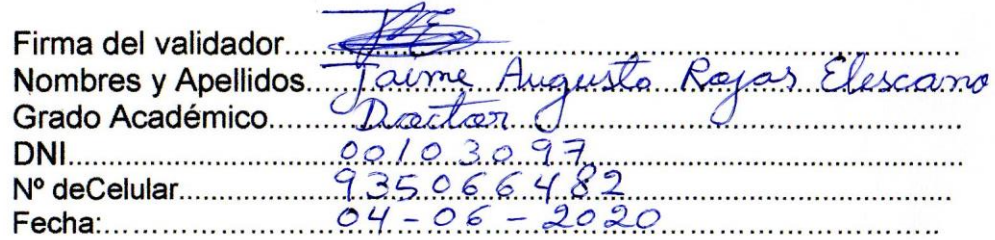 Firma del validador
Nombres y Apellidos Jaime Augusto Rojas Elescano
Grado Académico Doctor
DNI 00103097
Nº deCelular 935066482
Fecha: 04-06-2020